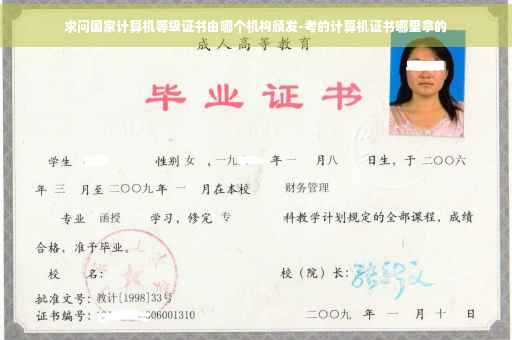 求问国家计算机等级证书由哪个机构颁发-考的计算机证书哪里拿的
成人高等教育
毕业证书
学生 性别 女 ,一九 年 一 月八 日生,于二〇〇六
年 三 月至二〇〇九年 一 月在本校 财务管理
专业 函授 学习,修完 专 科教学计划规定的全部课程,成绩
合格,准予毕业。
校 名: 校(院)长:
批准文号:教计[1998]33号
证书编号: 06001310 二〇〇九 年 一 月 十 日